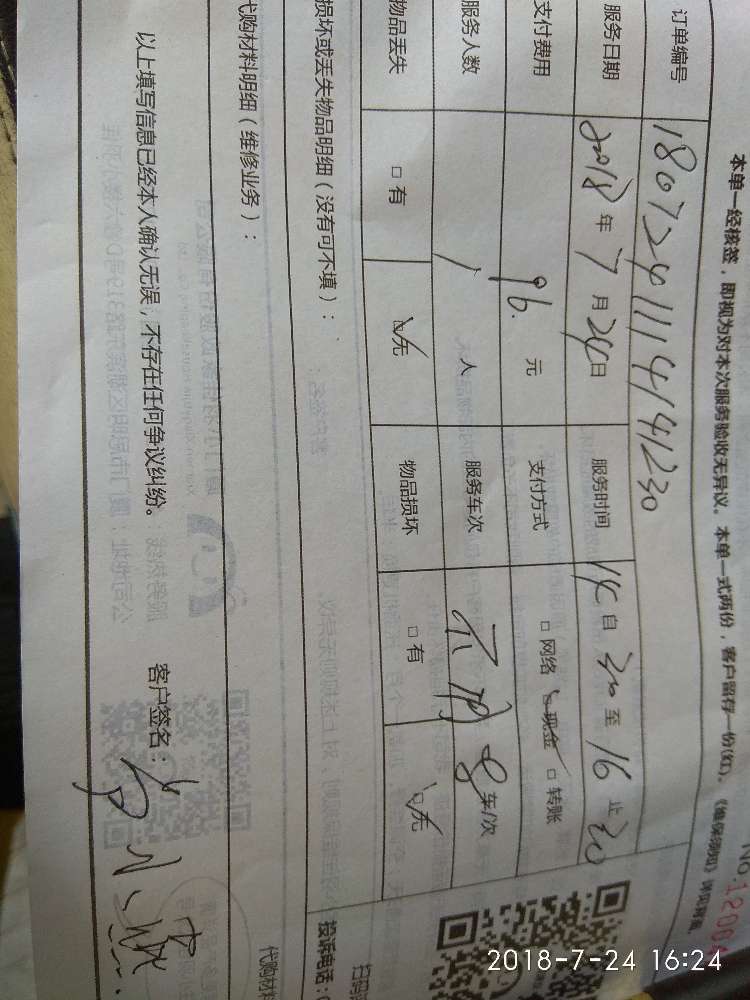 No.
本单一经核签，即视为对本次服务验收无异议。本单一式两份，客户留存一份(红)。
订单编号 180724111414141230
服务日期 2018 年 7 月 24 日 服务时间 14 自 30 至 16 止 30
支付费用 96. 元 支付方式 □ 网络 ☑ 现金 □ 转账
服务人数 1 人 服务车次 车/次
物品丢失 □ 有 ☑ 无 物品损坏 □ 有 ☑ 无
损坏或丢失物品明细（没有可不填）：
代购材料明细（维修业务）：
以上填写信息已经本人确认无误，不存在任何争议纠纷。 客户签名：
投诉电话：
代购材料
2018-7-24 16:24